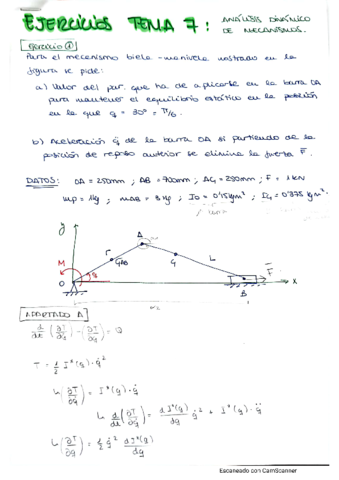 EJERCICIOS TEMA 7: ANÁLISIS DINÁMICO DE MECANISMOS.
Ejercicio 1
Para el mecanismo biela-manivela mostrado en la
figura se pide:
a) Valor del par que ha de aplicarse en la barra OA
para mantener el equilibrio estático en la posición
en la que q = 30° = π/6
b) Aceleración q̈ de la barra OA si partiendo de la
posición de reposo anterior se elimina la fuerza F.
DATOS: OA = 250mm ; AB = 700mm ; AG = 290mm ; F = 1kN
mp = 1kg ; mAB = 3kg ; IO = 0'15kgm² ; IG = 0'375kgm².
y
A
r
L
GAB
G
M
q
F
O
B
x
APARTADO A
d/dt (∂T/∂q̇) - (∂T/∂q) = Q
T = 1/2 I*(q) · q̇²
(∂T/∂q̇) = I*(q) · q̇
d/dt (∂T/∂q̇) = dI*(q)/dq q̇² + I*(q) · q̈
(∂T/∂q) = 1/2 q̇² dI*(q)/dq
Escaneado con CamScanner